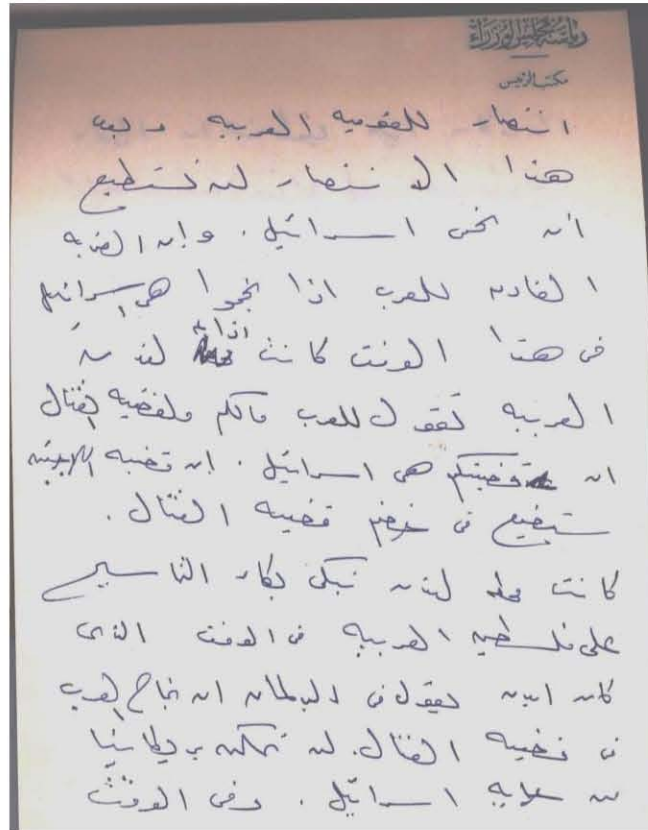 رئاسة مجلس الوزراء
مكتب الرئيس
انتصار للقومية العربية وبعد
هذا الانتصار لن نستطيع
أن نحمى اسرائيل. وان الضربه
القادمه للعرب اذا نجحوا هى اسرائيل
فى هذا الوقت كانت اذاعة لندن
العربيه تقول للعرب مالكم ولقضيه القنال
ان قضيتكم هى اسرائيل. ان قضيه اللاجئين
ستضيع فى خضم قضيه القنال.
كانت محطه لندن تبكى بكاء التماسيح
على فلسطين العربيه فى الوقت الذى
كان ايدن يقول فى البرلمان ان نجاح العرب
فى قضيه القنال. لن تمكن بريطانيا
من حمايه اسرائيل. وفى الوقت